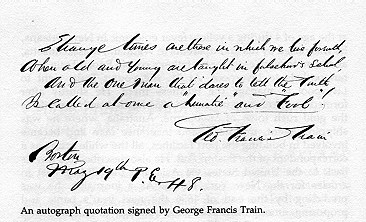 Strange times are these in which we live forsooth,
When old and young are taught in falsehoods school,
And the one man that dares to tell the truth
Is called at once a "lunatic" and "Fool"!
Geo. Francis Train
Boston
May 19th P.E. 48.
An autograph quotation signed by George Francis Train.